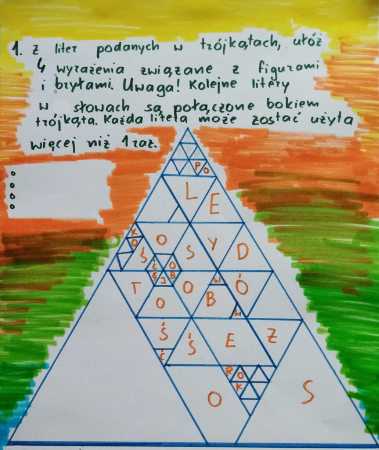 1. Z liter podanych w trójkątach, ułóż
4 wyrażenia związane z figurami
i bryłami. Uwaga! Kolejne litery
w słowach są połączone bokiem
trójkąta. Każda litera może zostać użyta
więcej niż 1 raz.
P O
L E
K O
Ś O S Y D
T O O B Ó
W
W
Ś Ś E Z
Ć
R O
K
O S